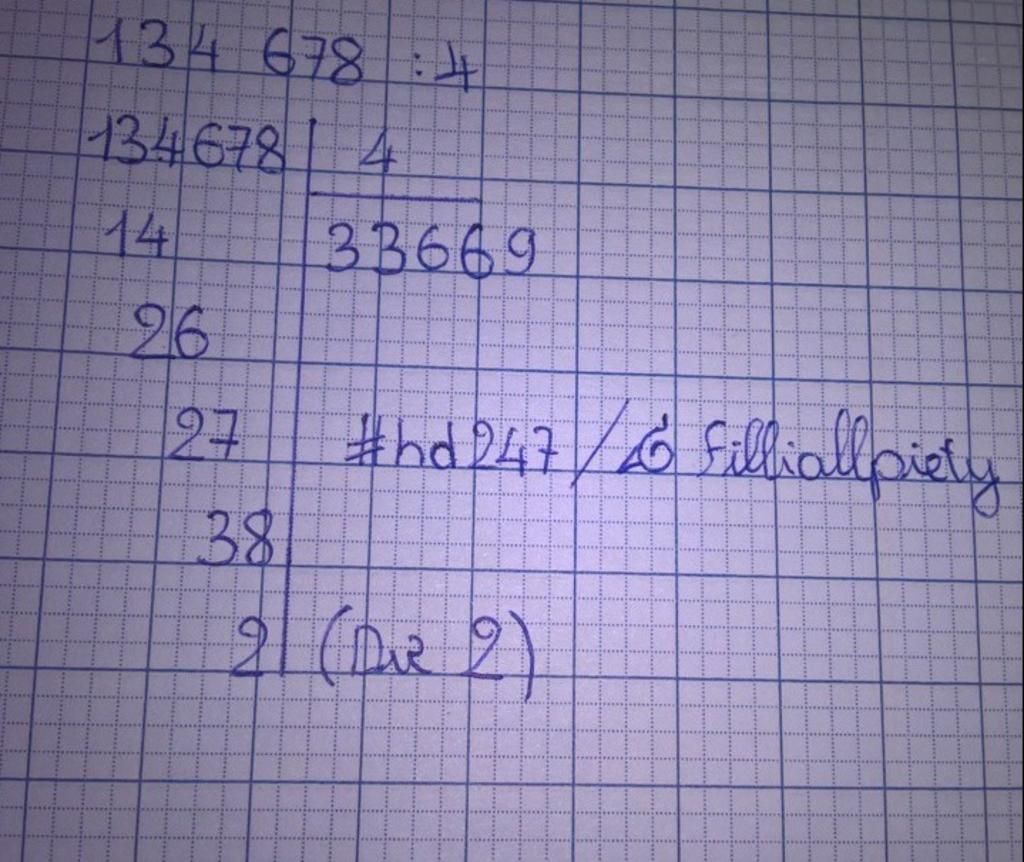 134 678 : 4
134678 4
14 33669
26
27 #hd247 / Filliallpiety
38
2 (Dư 2)